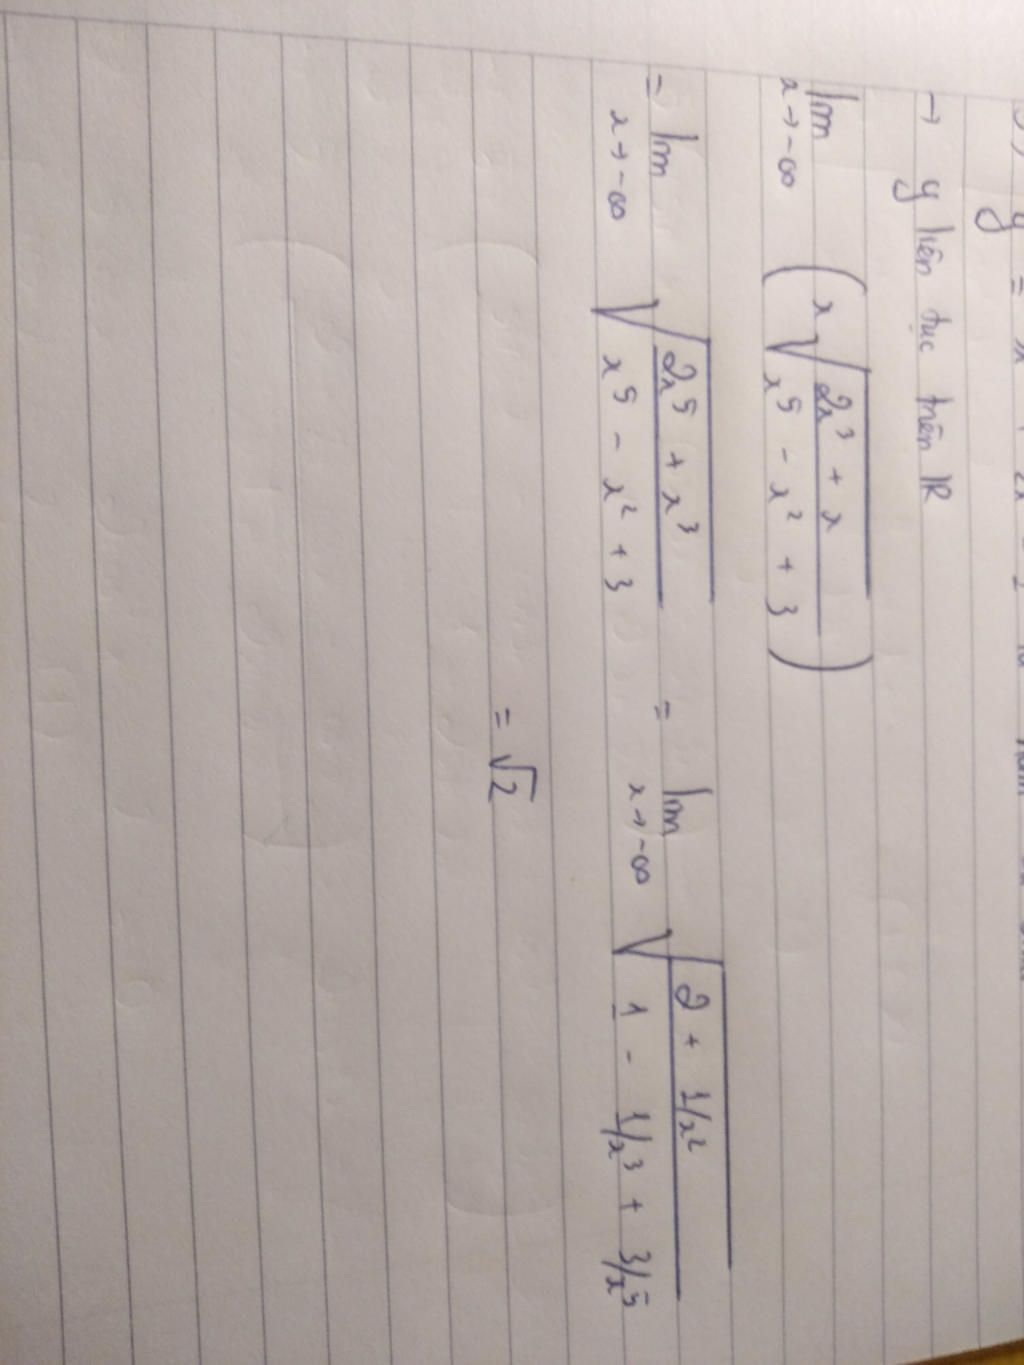 → y liên tục trên R
lim x→-∞ (x√((2x³ + x)/(x⁵ - x² + 3)))
= lim x→-∞ √((2x⁵ + x³)/(x⁵ - x² + 3)) = lim x→-∞ √((2 + 1/x²)/(1 - 1/x³ + 3/x⁵))
= √2